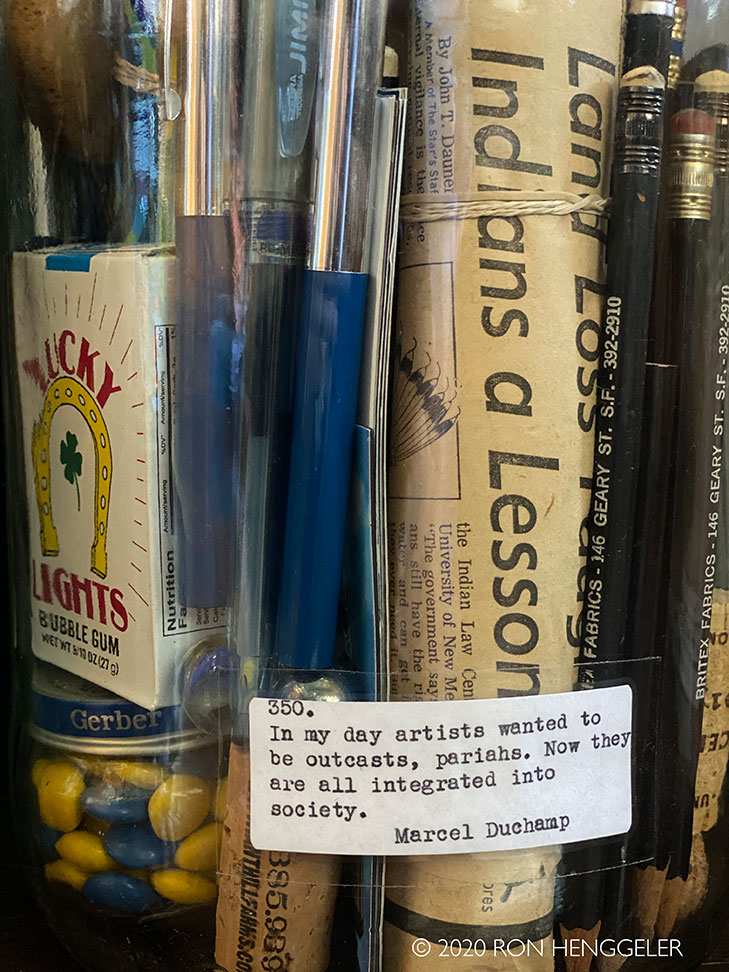 LUCKY
LIGHTS
BUBBLE GUM
NET WT 9/10 OZ (27g)
Nutrition
Amount/serving
%DV
Amount/serving
Gerber
JIMI
By John T. Dauner
A Member of The Star's Staf
vigilance is the
Land Loss
Indians a Lesson
the Indian Law Cen
University of New Me
"The government say
ans still have the ri
water and can get
FABRICS - 146 GEARY ST. S.F. - 392-2910
BRITEX FABRICS - 146 GEARY ST. S.F. - 392-2910
350.
In my day artists wanted to
be outcasts, pariahs. Now they
are all integrated into
society.
Marcel Duchamp
© 2020 RON HENGGELER